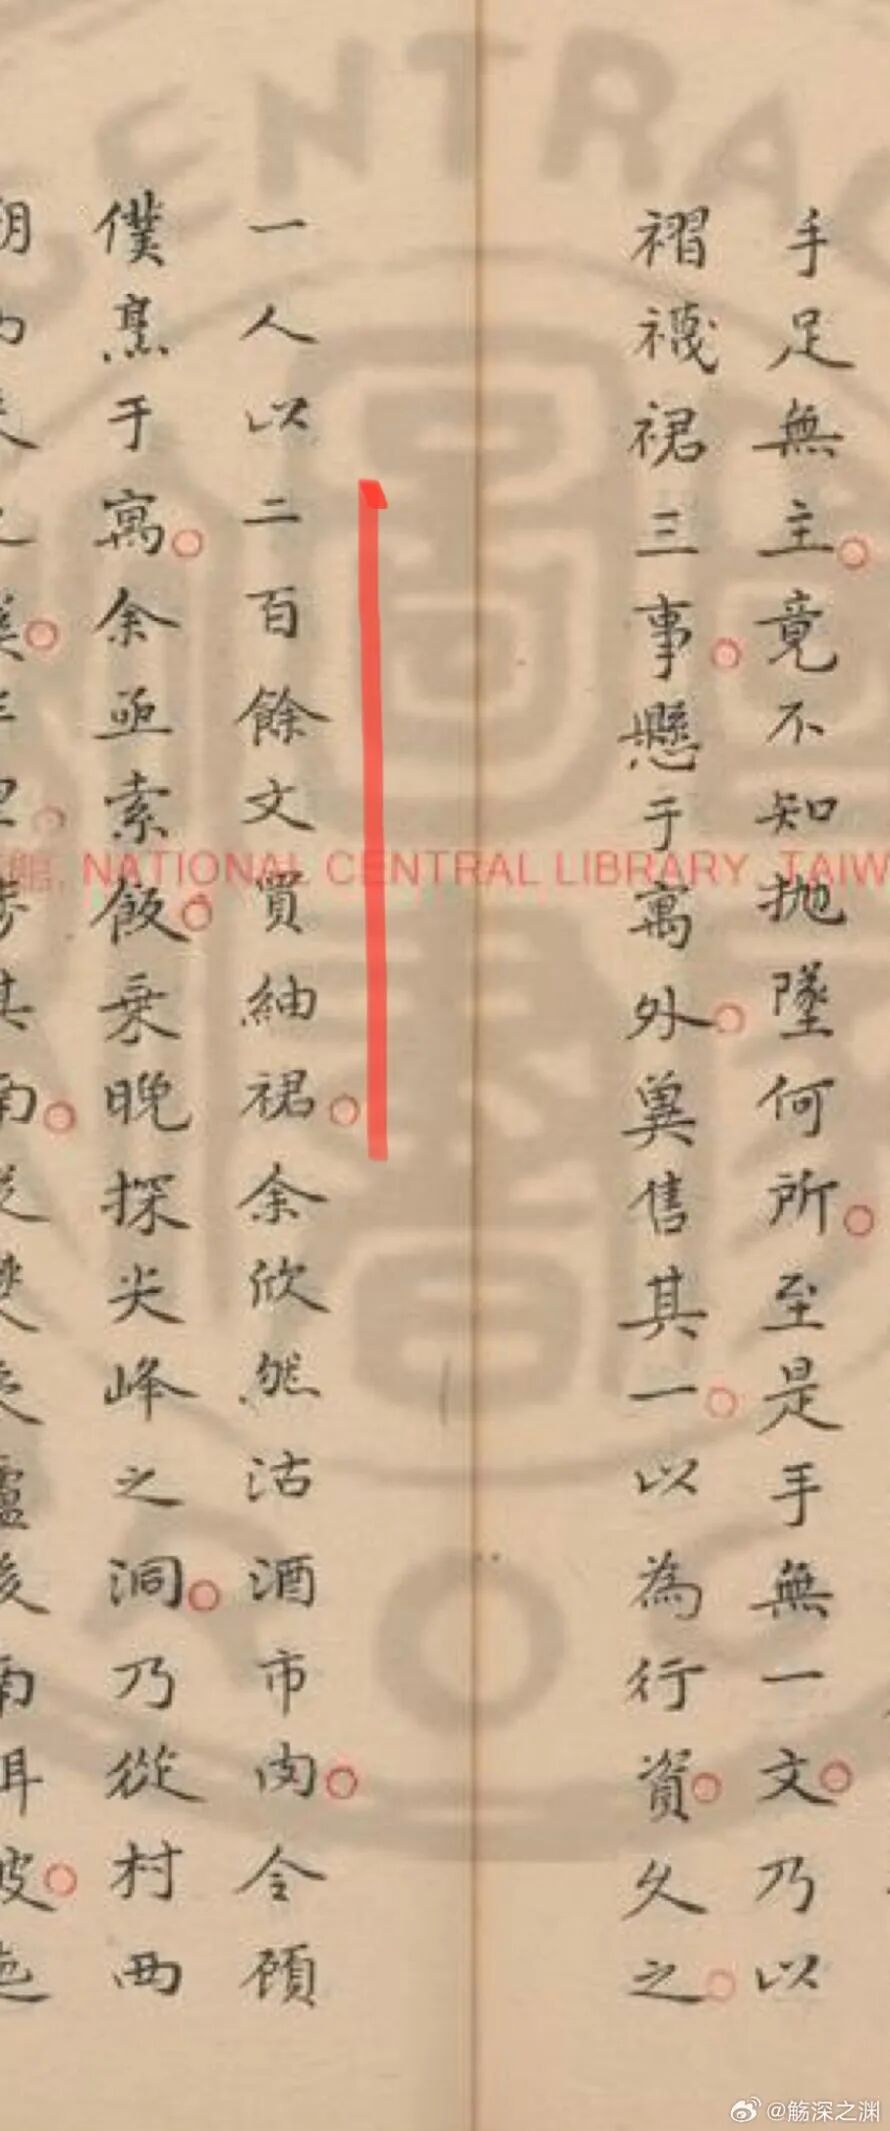 手足無主。竟不知拋墜何所。至是手無一文。乃以
褶襪裙三事。懸于寓外。冀售其一。以為行資。久之。
一人以二百餘文買紬裙。余欣然沽酒市肉。令顧
僕烹于寓。余亟索飯。乘晚探尖峰之洞。乃從村西
館, NATIONAL CENTRAL LIBRARY, TAIW
CENTRA
@觞深之渊